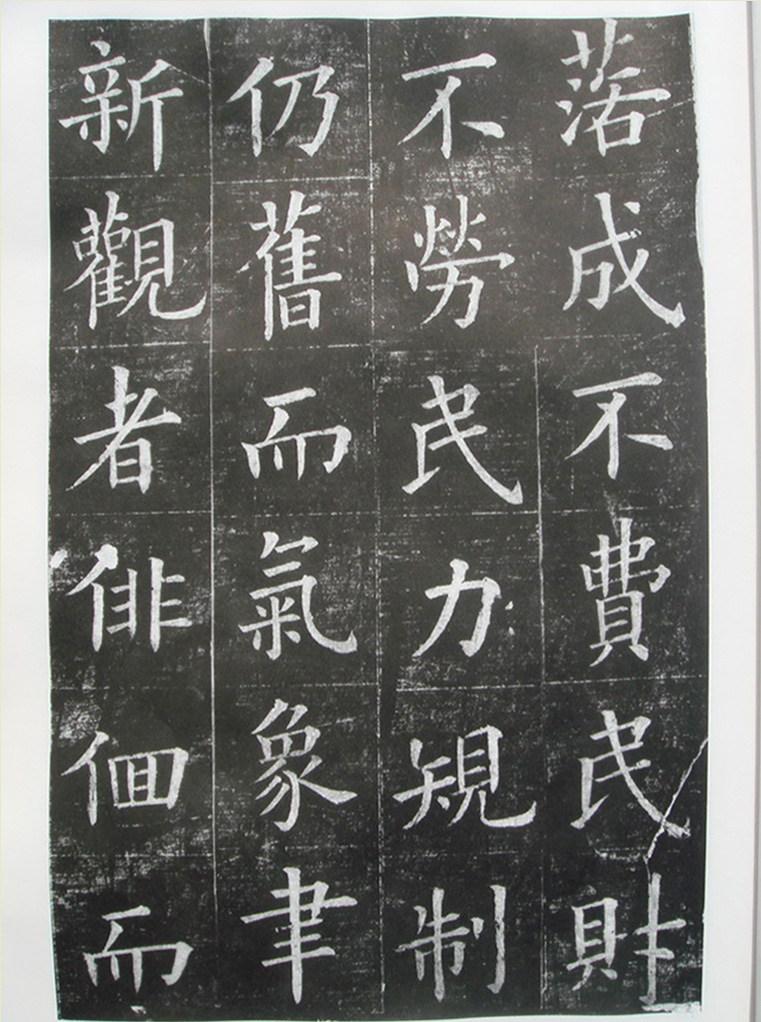 落成不費民財
不勞民力規制
仍舊而氣象聿
新觀者俳佪而